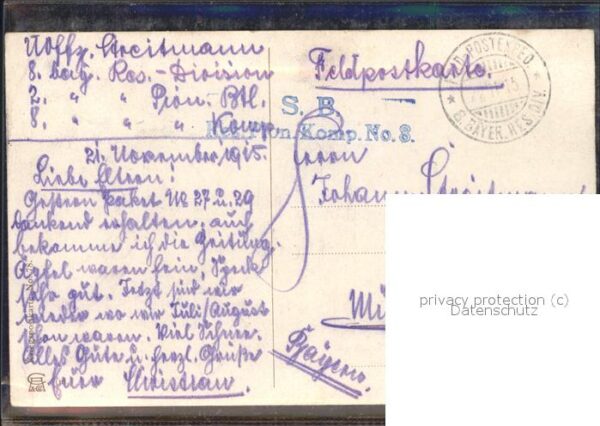 Uoffz. Streitmann
8. bay. Res.-Division
2. " " Pion. Btl.
8. " " Komp.
21. November 1915.
Liebe Eltern!
Gestern Paket No 27 u. 29
dankend erhalten, auch
bekomme ich die Zeitung.
Äpfel waren fein, Speck
sehr gut. Jetzt sind wir
wieder wo wir Juli/August
schon waren. Viel Schnee.
Alles Gute u. herzl. Grüße
Euer Christian
Feldpostkarte.
S. B.
Komp. No. 8.
FELD-POSTEXPED.
8. BAYER. RES. DIV.
Herrn
Johann Streitmann
Mü
Bayern.
privacy protection (c)
Datenschutz